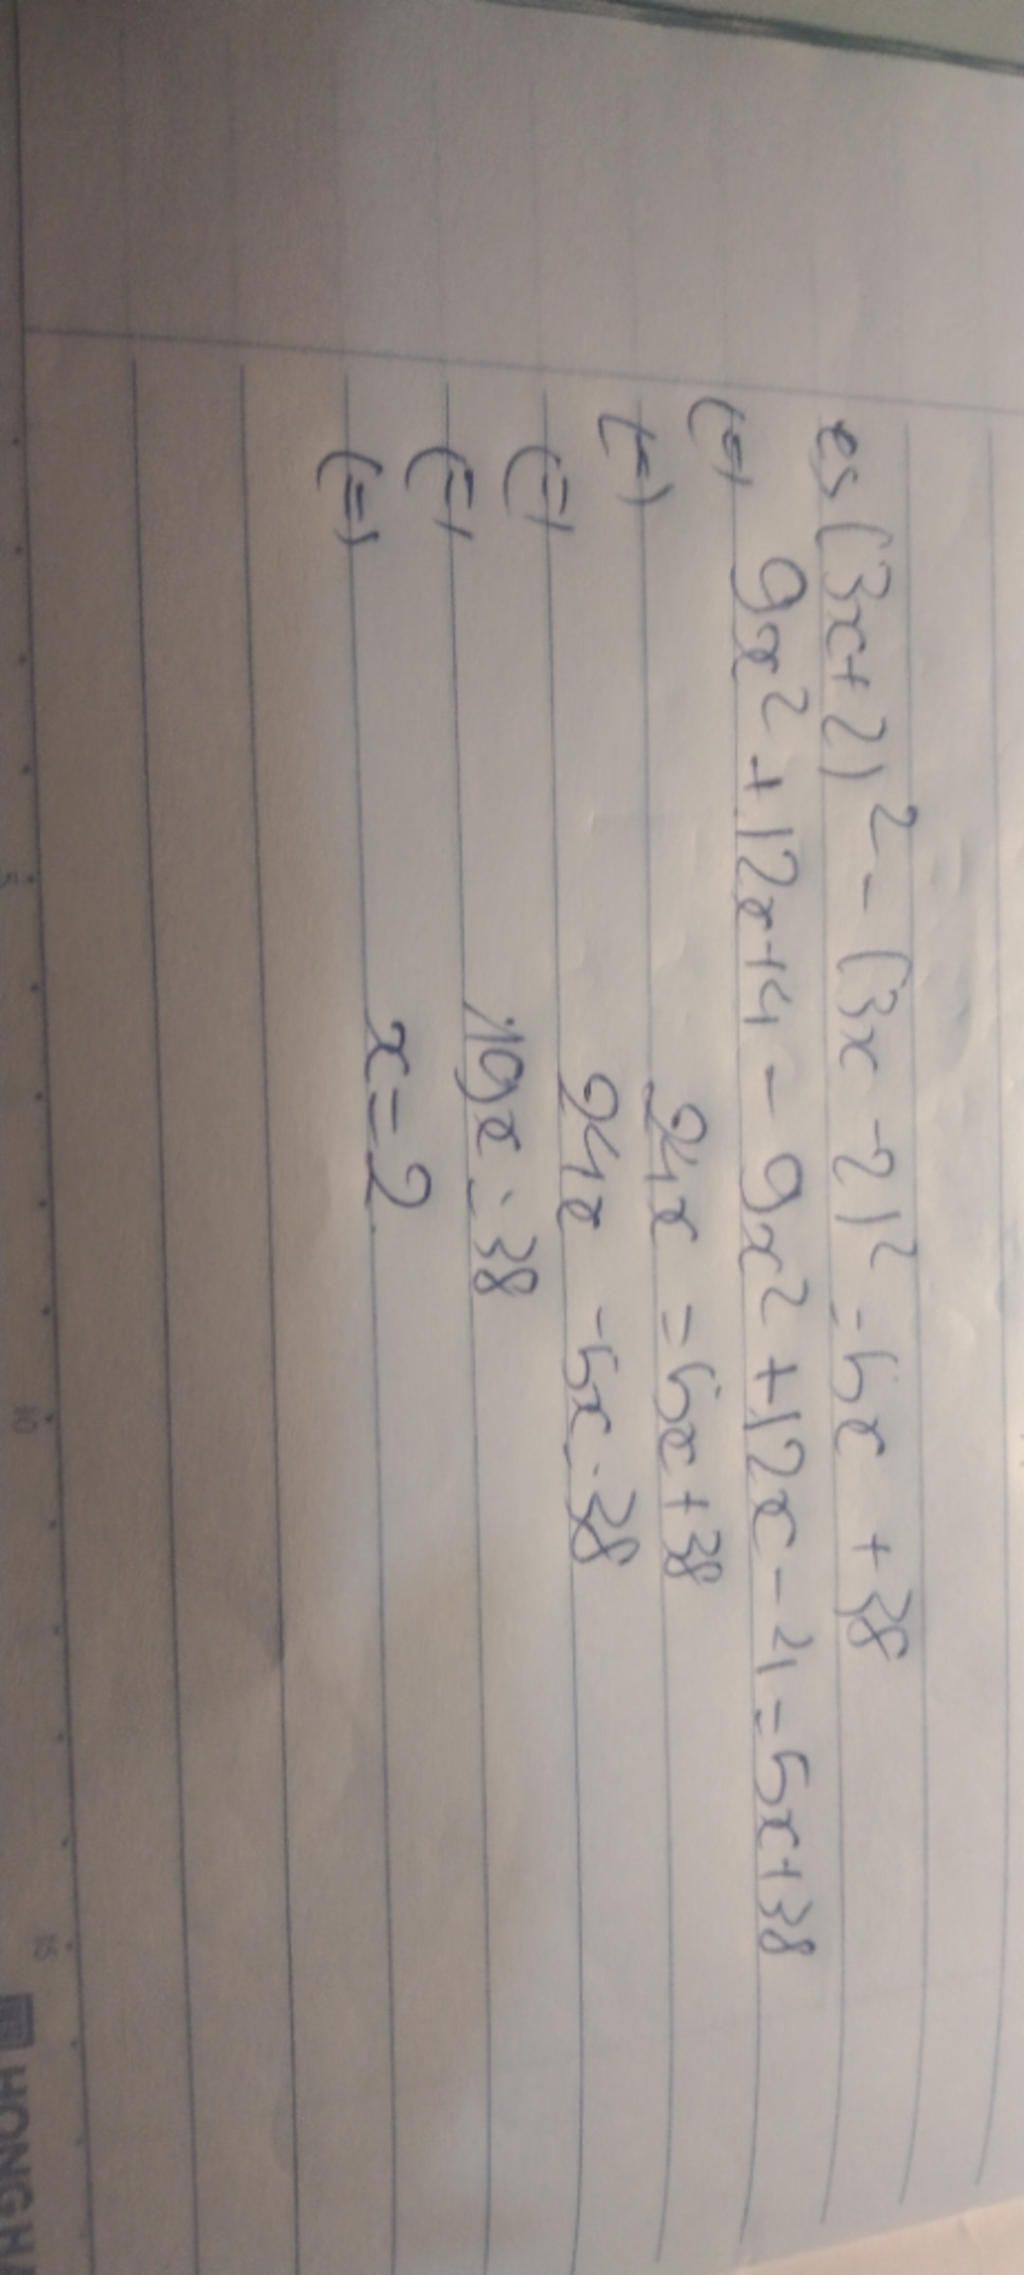 e, (3x+2)² - (3x-2)² = 5x + 38
(=) 9x² + 12x+4 - 9x² + 12x - 4 = 5x+38
(=) 24x = 5x+38
(=) 24x - 5x = 38
(=) 19x = 38
(=) x = 2
5
10
15
HONG HA